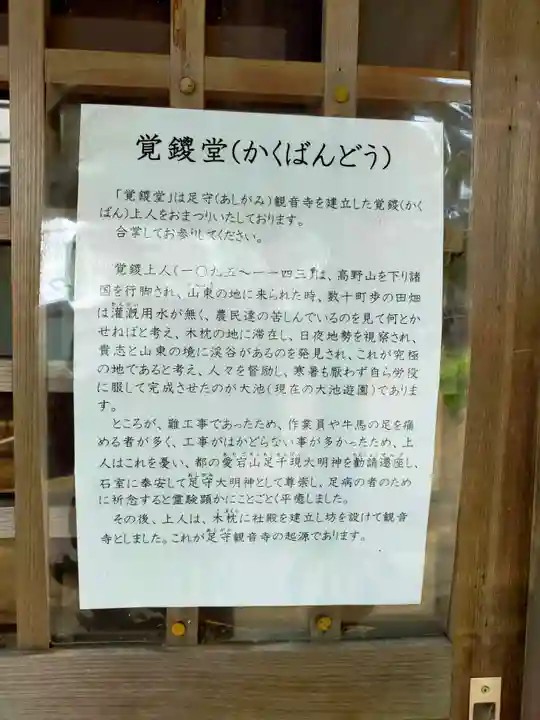 覚鑁堂(かくばんどう)
「覚鑁堂」は足守(あしがみ)観音寺を建立した覚鑁(かく
ばん)上人をおまつりいたしております。
合掌してお参りしてください。
覚鑁上人(一〇九五〜一一四三)は、高野山を下り諸
国を行脚され、山東の地に来られた時、数十町歩の田畑
は灌漑用水が無く、農民達の苦しんでいるのを見て何とか
せねばと考え、木枕の地に滞在し、日夜地勢を視察され、
貴志と山東の境に渓谷があるのを発見され、これが究極
の地であると考え、人々を督励し、寒暑も厭わず自ら労役
に服して完成させたのが大池(現在の大池遊園)でありま
す。
ところが、難工事であったため、作業員や牛馬の足を痛
める者が多く、工事がはかどらない事が多かったため、上
人はこれを憂い、都の愛宕山足千現大明神を勧請遷座し、
石室に奉安して足守大明神として尊崇し、足病の者のため
に祈念すると霊験顕かにことごとく平癒しました。
その後、上人は、木枕に社殿を建立し坊を設けて観音
寺としました。これが足守観音寺の起源であります。